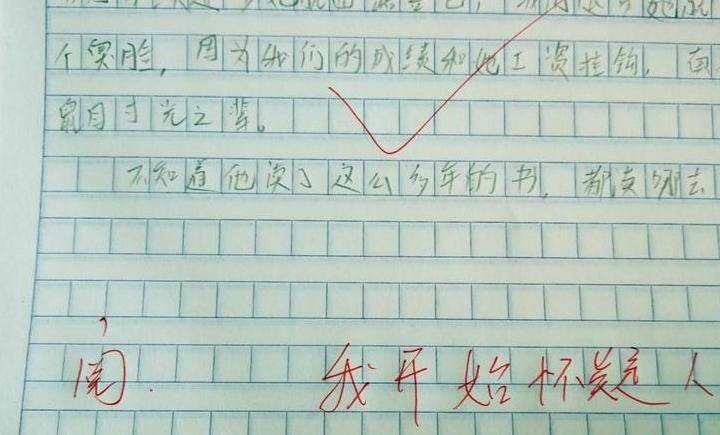 个臭脸，因为我们的成绩和他工资挂钩，
鼠目寸光之辈。
不知道他读了这么多年的书，都读哪去
阅. 我开始怀疑人